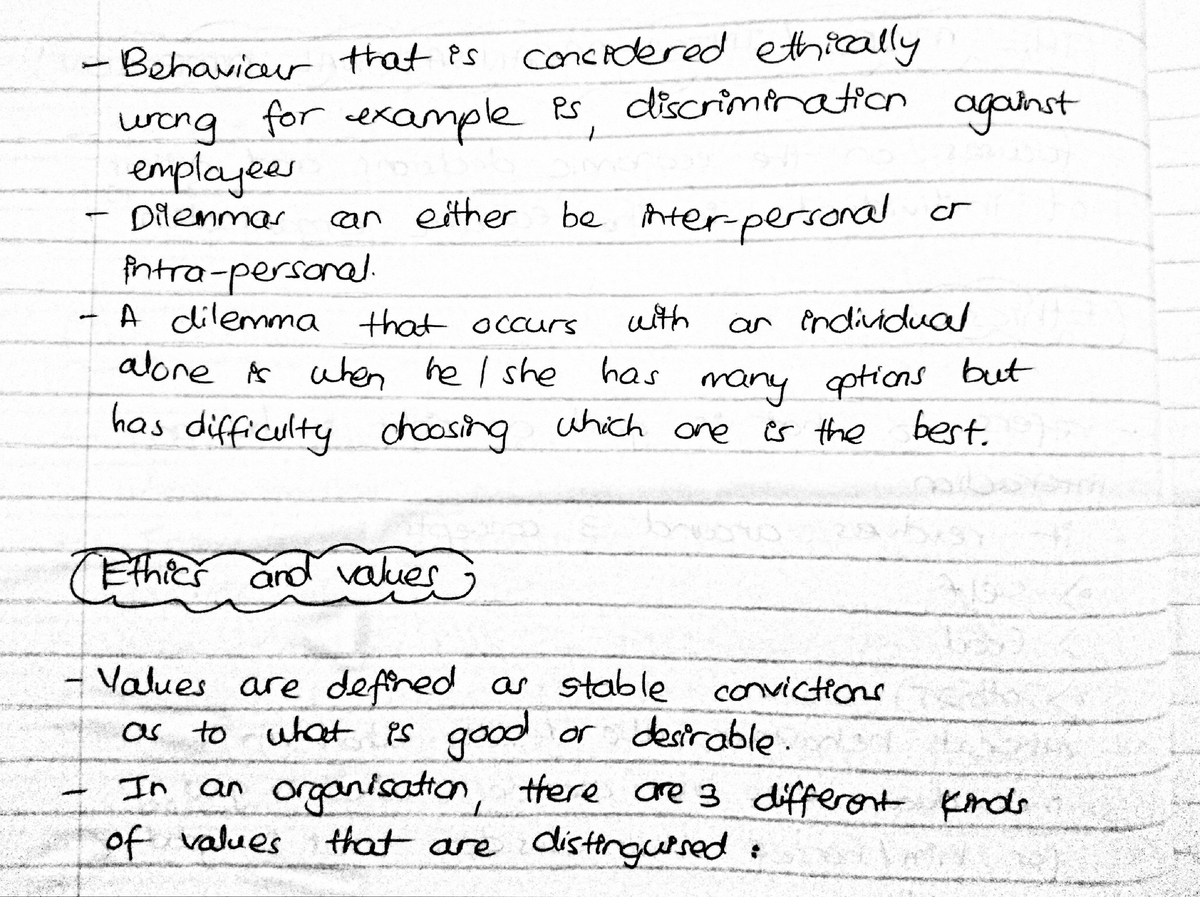 - Behaviour that is considered ethically
wrong for example is, discrimination against
employees
- Dilemmas can either be inter-personal or
intra-personal.
- A dilemma that occurs with an individual
alone is when he / she has many options but
has difficulty choosing which one is the best.
Ethics and values
- Values are defined as stable convictions
as to what is good or desirable.
- In an organisation, there are 3 different kinds
of values that are distinguised :